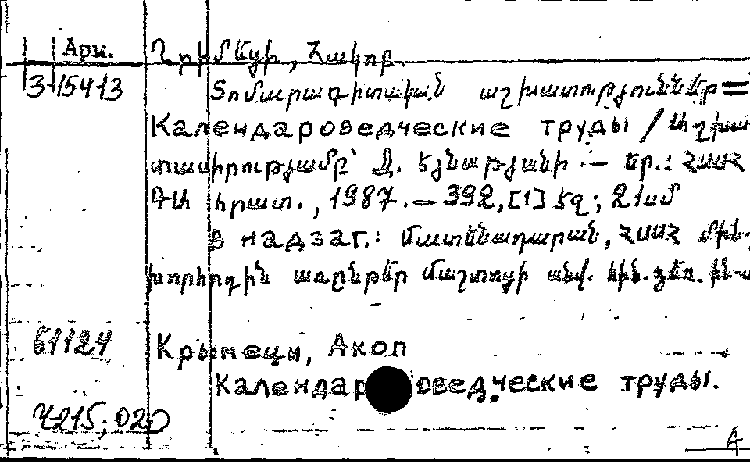 Арм. Ղրիմեցի, Հակոբ.
3-15413 Տոմարագիտական աշխատություններ =
Календароведческие труды / Աշխա
տասիրությամբ՝ Ջ. Էյնաթյանի. — Եր.: ՀՍՍՀ
ԳԱ հրատ., 1987. — 392, [1] էջ; 21սմ
В надзаг.: Մատենադարան, ՀՍՍՀ մին.
խորհրդին առընթեր Մաշտոցի անվ. հին. ձեռ. ին-տ
61124 Крымеци, Акоп
Календароведческие труды.
4215; 020
А